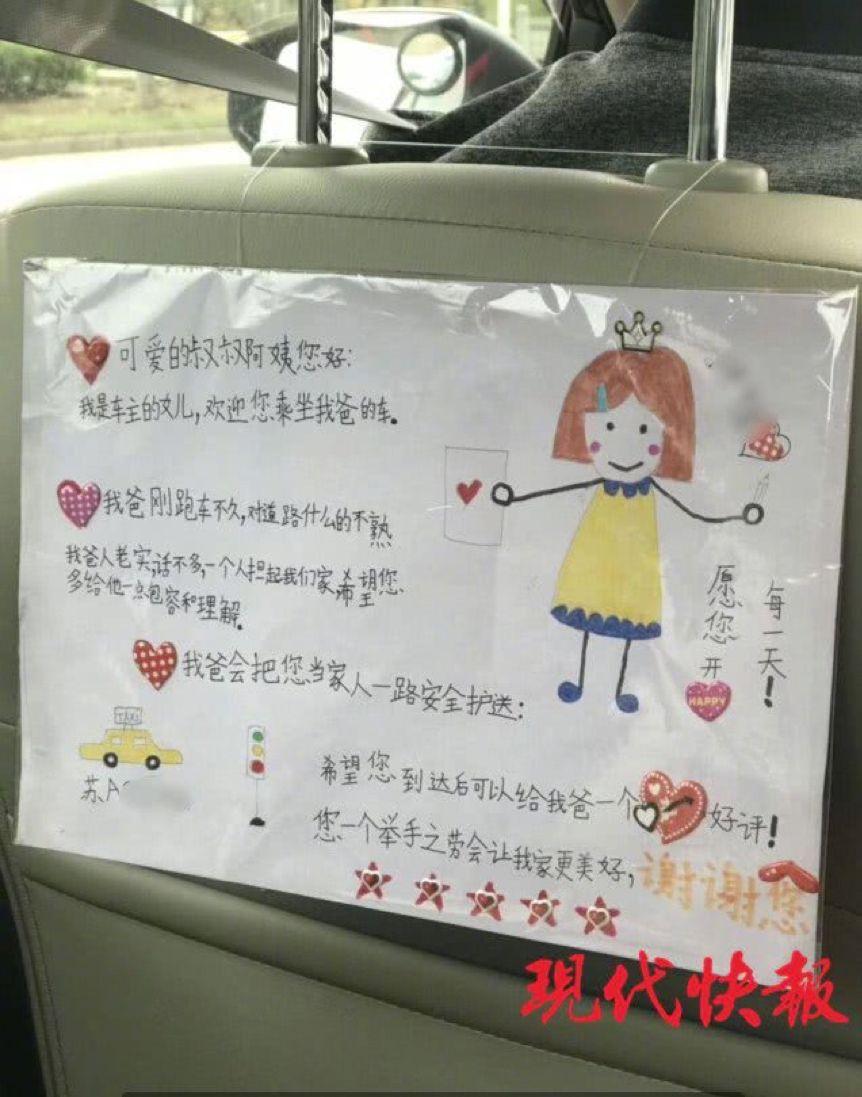 可爱的叔叔阿姨您好：
我是车主的女儿，欢迎您乘坐我爸的车。
我爸刚跑车不久，对道路什么的不熟
我爸人老实，话不多，一个人担起我们家，希望您
多给他一点包容和理解。
我爸会把您当家人一路安全护送：
TAXI
苏A
希望您到达后可以给我爸一个好评！
您一个举手之劳会让我家更美好，谢谢您
愿您开
HAPPY
每一天！
现代快報